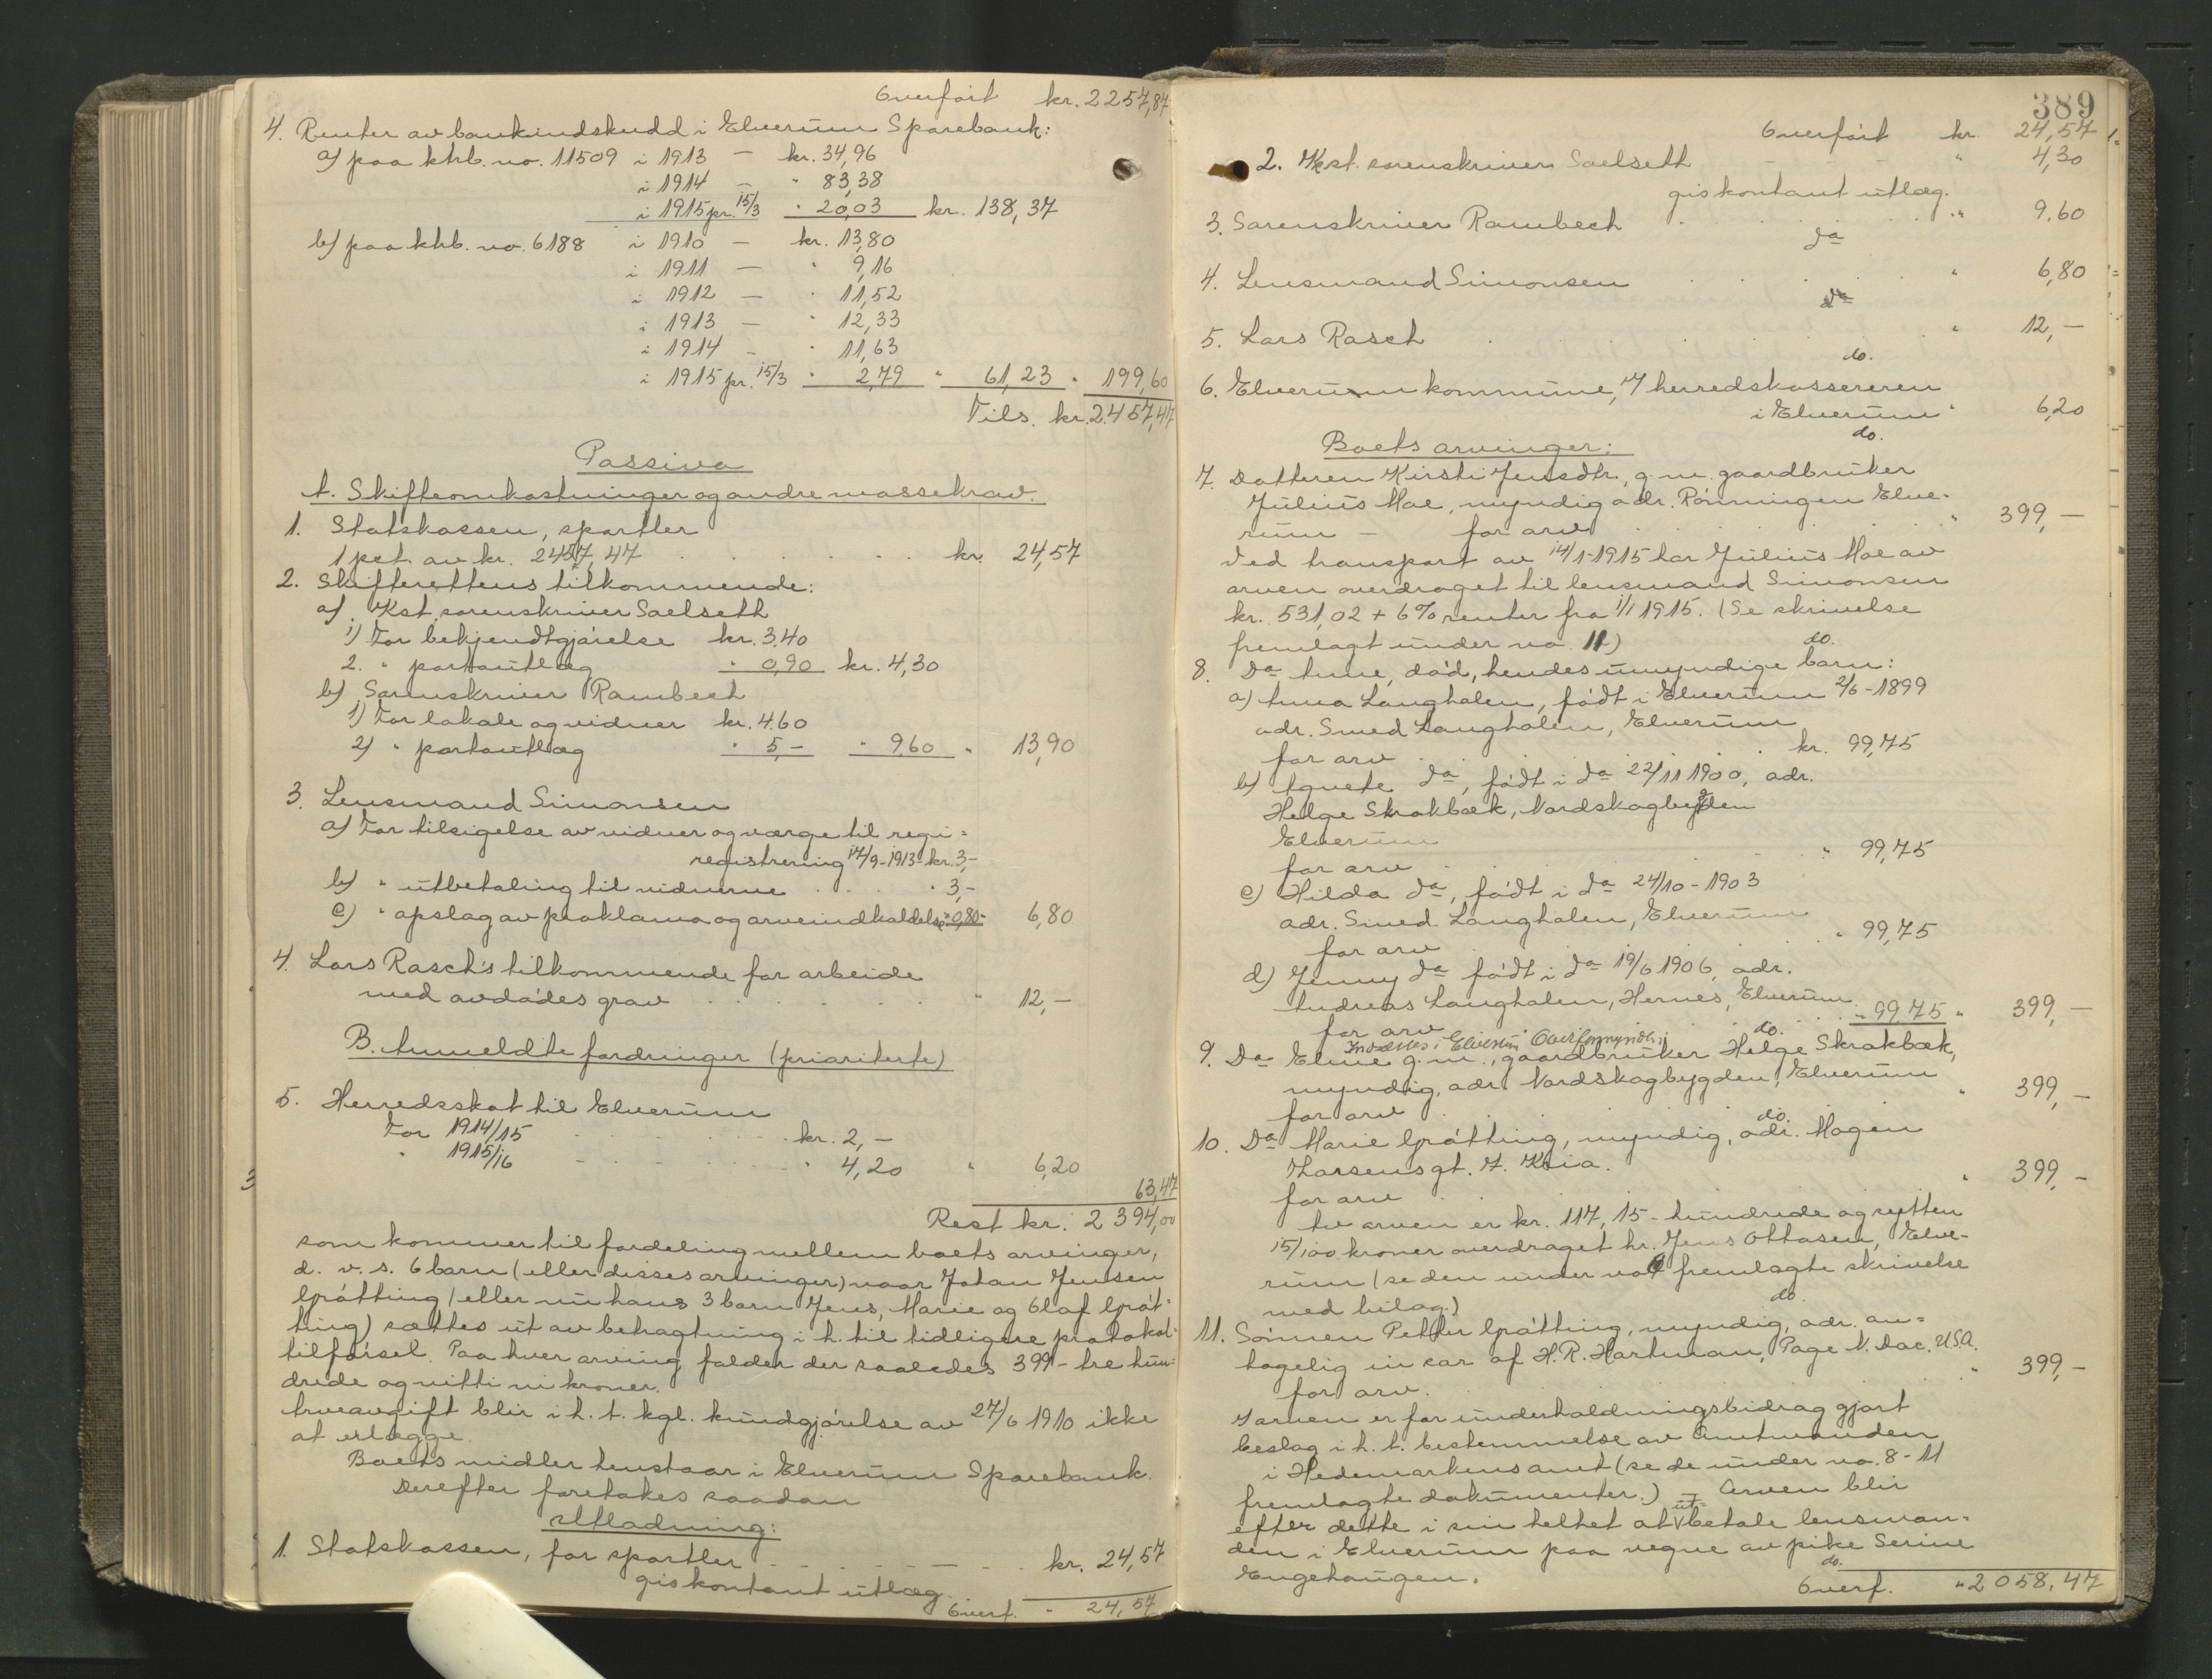 Overført kr. 2257,87
4. Renter av bankindskudd i Elverum Sparebank:
a) paa ktrb. no. 11509 i 1913 — kr. 34,96
i 1914 — " 83,38
i 1915 pr. 15/3 " 20,03 kr. 138,37
b) paa ktrb. no. 6188 i 1910 — kr. 13,80
i 1911 — " 9,16
i 1912 — " 11,52
i 1913 — " 12,33
i 1914 - " 11,63
i 1915 pr. 15/3 " 2,79 " 61,23 " 199,60
Tils. kr. 2457,47
Passiva
A. Skifteomkostninger og andre massekrav.
1. Statskassen, sportler
1 pct. av kr. 2457,47 kr. 24,57
2. Skifterettens tilkommende:
a) Kst. sorenskriver Saelseth
1) For bekjendtgjørelse kr. 3.40
2. " portoutlæg " 0,90 kr. 4,30
b) Sorenskriver Rambech
1) For lokale og vidner kr. 4.60
2) " portoutlæg " 5,- " 9,60 " 13,90
3. Lensmand Simonsen
a) For tilsigelse av vidner og værge til regi=
registrering 17/9-1913 kr. 3,-
b) " utbetaling til vidnerne " 3,-
c) " opslag av proklama og arveindkaldelse " 0,80 - 6,80
4. Lars Rasch's tilkommende for arbeide
med avdødes grav " 12,—
B. Anmeldte fordringer (prioriterte)
5. Herredsskat til Elverum
For 1914/15 kr. 2,-
" 1915/16 " 4,20 " 6,20
63,47
Rest kr. 2394,00
som kommer til fordeling mellem boets arvinger,
d. v. s. 6 barn (eller disses arvinger) naar Johan Jensen
Grøtting (eller nu hans 3 barn Jens, Marie og Olaf Grøt=
ting) sættes ut av betragtning i h. til tidligere protokol=
tilførsel. Paa hver arving falder der saaledes 399 - tre hun=
drede og nitti ni kroner.
Arveavgift blir i h. t. kgl. kundgjørelse av 27/6 1910 ikke
at erlægge.
Boets midler henstaar i Elverum Sparebank.
Derefter foretokes saadan
Utlodning:
1. Statskassen, for sportler kr. 24,57
gis kontant utlæg.
Overf. " 24,57
389
Overført kr. 24,57
2. Kst. sorenskriver Saelseth " 4,30
gis kontant utlæg.
3. Sorenskriver Rambech " 9,60
do
4. Lensmand Simonsen " 6,80
do
5. Lars Rasch " 12,—
do.
6. Elverum kommune, v/ herredskassereren
i Elverum " 6,20
do.
Boets arvinger:
7. Datteren Kirsti Jensdtr., g. m. gaardbruker
Julius Moe, myndig adr. Rønningen Elve-
rum — for arv " 399,—
Ved transport av 14/1-1915 har Julius Moe av
arven overdraget til lensmand Simonsen
kr. 531,02 + 6% renter fra 1/1 1915. (Se skrivelse
fremlagt under no. 11) do.
8. Do Anne, død, hendes umyndige barn:
a) Anna Langholen, født i Elverum 2/6-1899
adr. Smed Langholen, Elverum
for arv kr. 99,75
b) Agnete do, født i do 22/11 1900, adr.
Helge Skrakbæk, Nordskogbygden
Elverum
for arv " 99,75
c) Hilda do, født i do 24/10-1903
adr. Smed Langholen, Elverum
for arv " 99,75
d) Jenny do født i do 19/6 1906, adr.
Andreas Langholen, Hernes, Elverum
for arv " 99,75 " 399,—
Indsættes i Elverum Overformynderi do.
9. Do Eline g. m., gaardbruker Helge Skrakbæk,
myndig, adr. Nordskogbygden, Elverum
for arv " 399,—
do.
10. Do Marie Grøtting, myndig, adr. Mogen
Thorsensgt. 7. Kria.
for arv " 399,-
Av arven er kr. 117,15 - hundrede og sytten
15/100 kroner overdraget hr. Jens Ottosen, Elve-
rum (se den under no fremlagte skrivelse
med bilag.) do.
11. Sønnen Petter Grøtting, myndig, adr. an=
tagelig in car af H. R. Hartman, Page N. Dac. U.S.A.
for arv. " 399,-
I arven er for underholdningsbidrag gjort
beslag i h. t. bestemmelse av Amtmanden
i Hedemarkens amt (se de under no. 8-11
fremlagte dokumenter.) I Arven blir
efter dette i sin helhet at ut-betale lensman=
den i Elverum paa vegne av pike Serine
Engehaugen. do.
Overf. " 2058,47